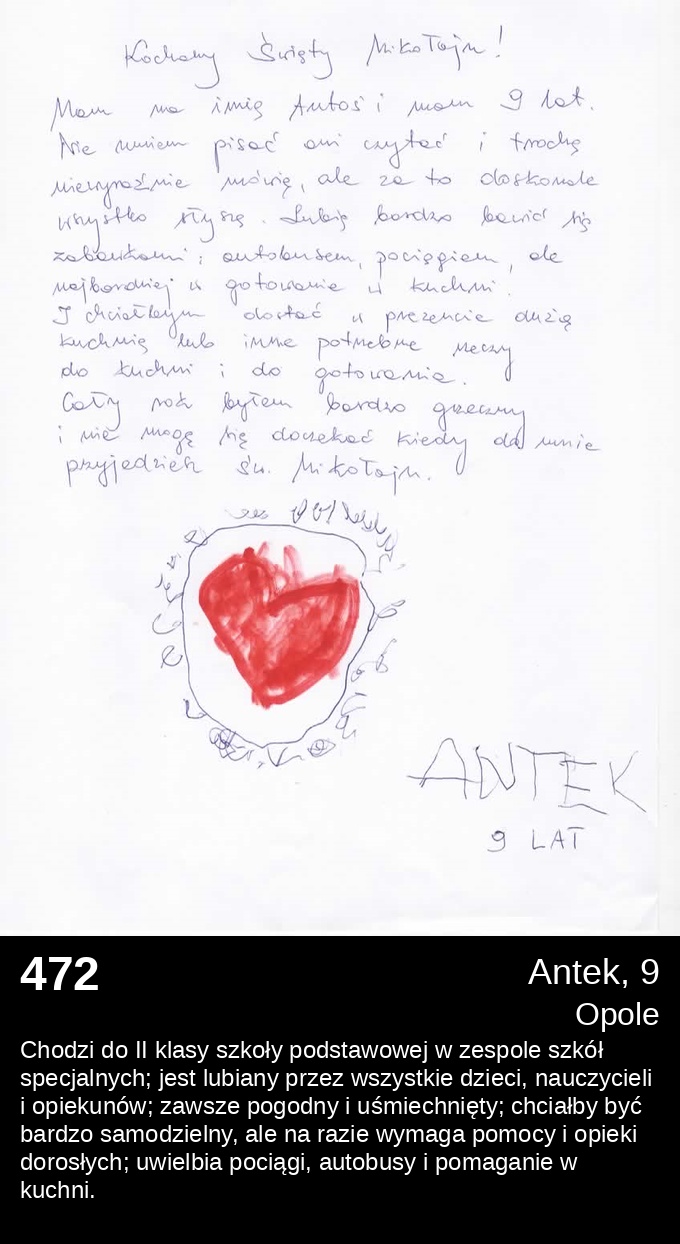 Kochany Święty Mikołaju!
Mam na imię Antoś i mam 9 lat.
Nie umiem pisać ani czytać i trochę
niewyraźnie mówię, ale za to doskonale
wszystko słyszę. Lubię bardzo bawić się
zabawkami: autobusem, pociągiem, ale
najbardziej w gotowanie w kuchni.
I chciałbym dostać w prezencie dużą
kuchnię lub inne potrzebne rzeczy
do kuchni i do gotowania.
Cały rok byłem bardzo grzeczny
i nie mogę się doczekać kiedy do mnie
przyjedzie św. Mikołaju.
ANTEK
9 LAT
472
Antek, 9
Opole
Chodzi do II klasy szkoły podstawowej w zespole szkół
specjalnych; jest lubiany przez wszystkie dzieci, nauczycieli
i opiekunów; zawsze pogodny i uśmiechnięty; chciałby być
bardzo samodzielny, ale na razie wymaga pomocy i opieki
dorosłych; uwielbia pociągi, autobusy i pomaganie w
kuchni.